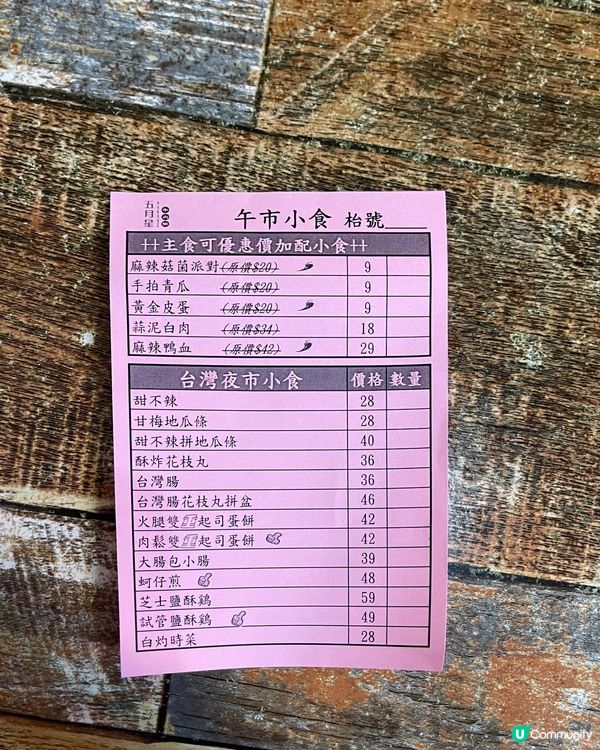 五月星
午市小食 枱號
++主食可優惠價加配小食++
麻辣菇菌派對(原價$20) 9
手拍青瓜 (原價$20) 9
黃金皮蛋 (原價$20) 9
蒜泥白肉 (原價$34) 18
麻辣鴨血 (原價$42) 29
台灣夜市小食 價格 數量
甜不辣 28
甘梅地瓜條 28
甜不辣拼地瓜條 40
酥炸花枝丸 36
台灣腸 36
台灣腸花枝丸拼盆 46
火腿雙重起司蛋餅 42
肉鬆雙重起司蛋餅 42
大腸包小腸 39
蚵仔煎 48
芝士鹽酥鷄 59
試管鹽酥鷄 49
白灼時菜 28
U Community